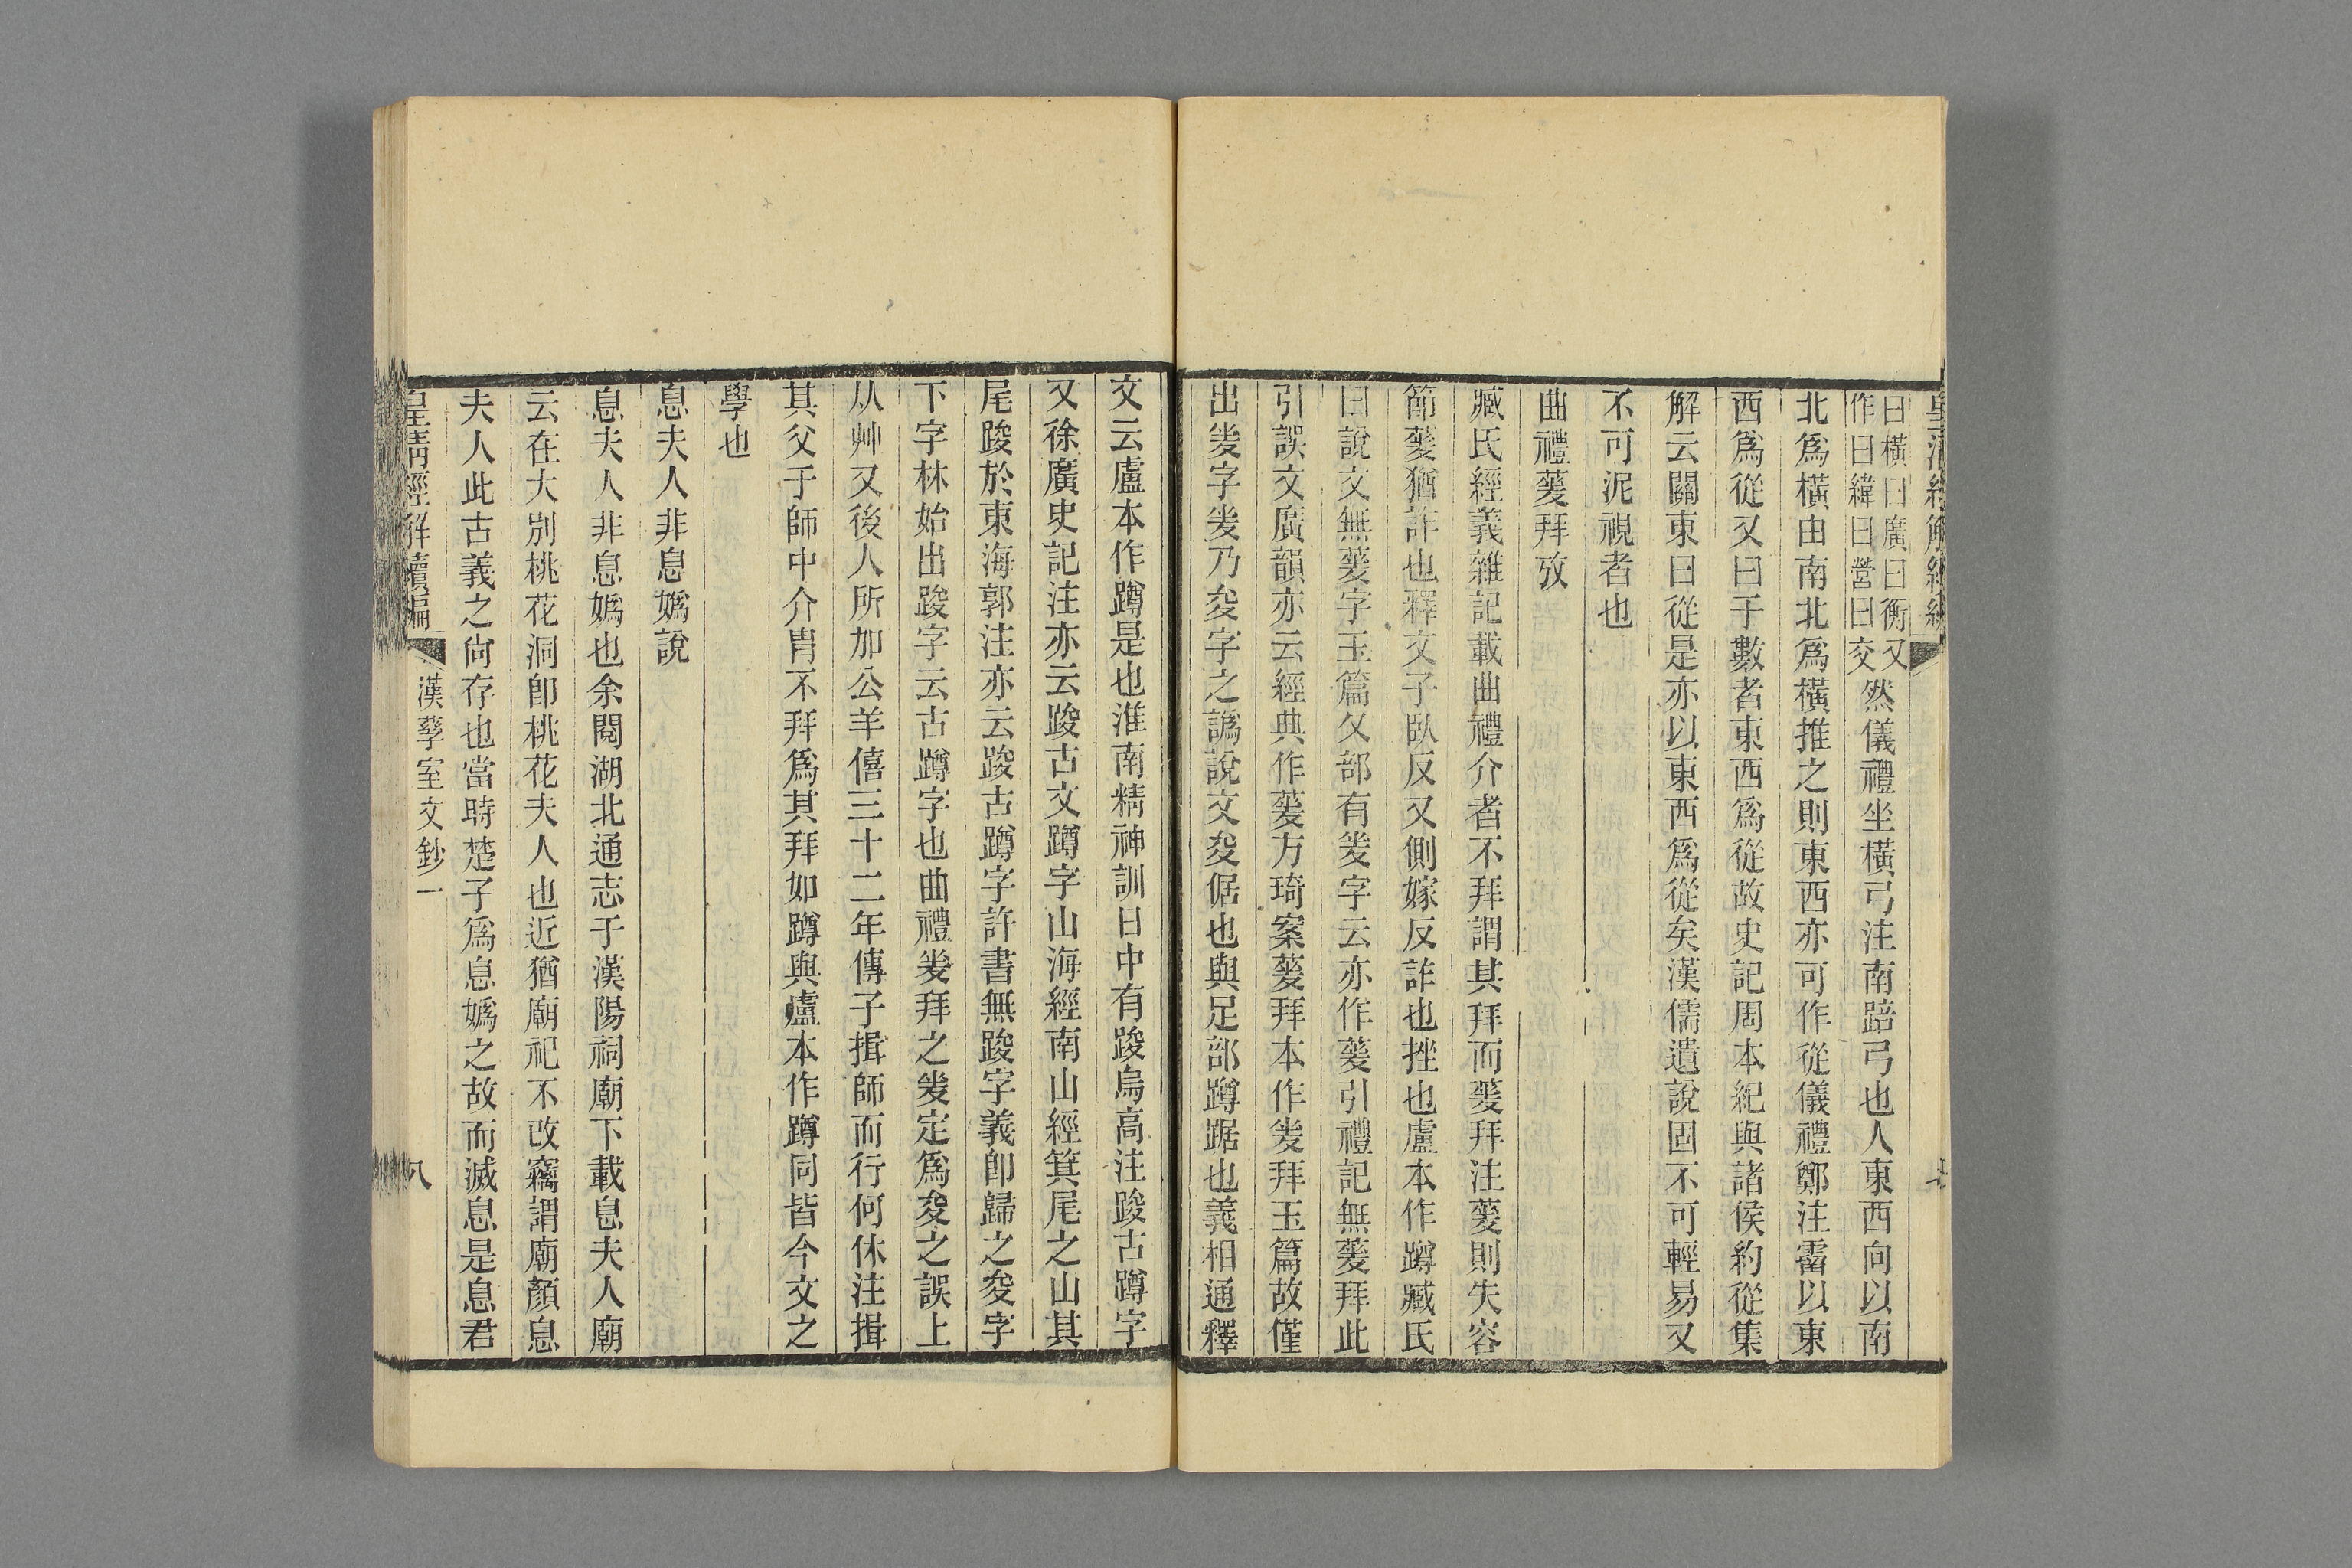 皇清經解續編
曰橫曰廣曰衡又
作曰緯曰營曰交
然儀禮坐橫弓注南踣弓也人東西向以南
北爲橫由南北爲橫推之則東西亦可作從儀禮鄭注霤以東
西爲從又曰于數者東西爲從故史記周本紀與諸侯約從集
解云關東曰從是亦以東西爲從矣漢儒遺說固不可輕易又
不可泥視者也
曲禮蓌拜攷
臧氏經義雜記載曲禮介者不拜謂其拜而蓌拜注蓌則失容
節蓌猶詐也釋文子臥反又側嫁反詐也挫也盧本作蹲臧氏
曰說文無蓌字玉篇夊部有夎字云亦作蓌引禮記無蓌拜此
引誤文廣韻亦云經典作蓌方琦案蓌拜本作夎拜玉篇故僅
出夎字夎乃夋字之譌說文夋倨也與足部蹲踞也義相通釋
文云盧本作蹲是也淮南精神訓日中有踆烏高注踆古蹲字
又徐廣史記注亦云踆古文蹲字山海經南山經箕尾之山其
尾踆於東海郭注亦云踆古蹲字許書無踆字義卽歸之夋字
下字林始出踆字云古蹲字也曲禮夎拜之夎定爲夋之誤上
从艸又後人所加公羊僖三十二年傳子揖師而行何休注揖
其父于師中介胄不拜爲其拜如蹲與盧本作蹲同皆今文之
學也
息夫人非息嬀說
息夫人非息嬀也余閱湖北通志于漢陽祠廟下載息夫人廟
云在大別桃花洞卽桃花夫人也近猶廟祀不改竊謂廟顏息
夫人此古義之尙存也當時楚子爲息嬀之故而滅息是息君
皇清經解續編
漢孳室文鈔一
八